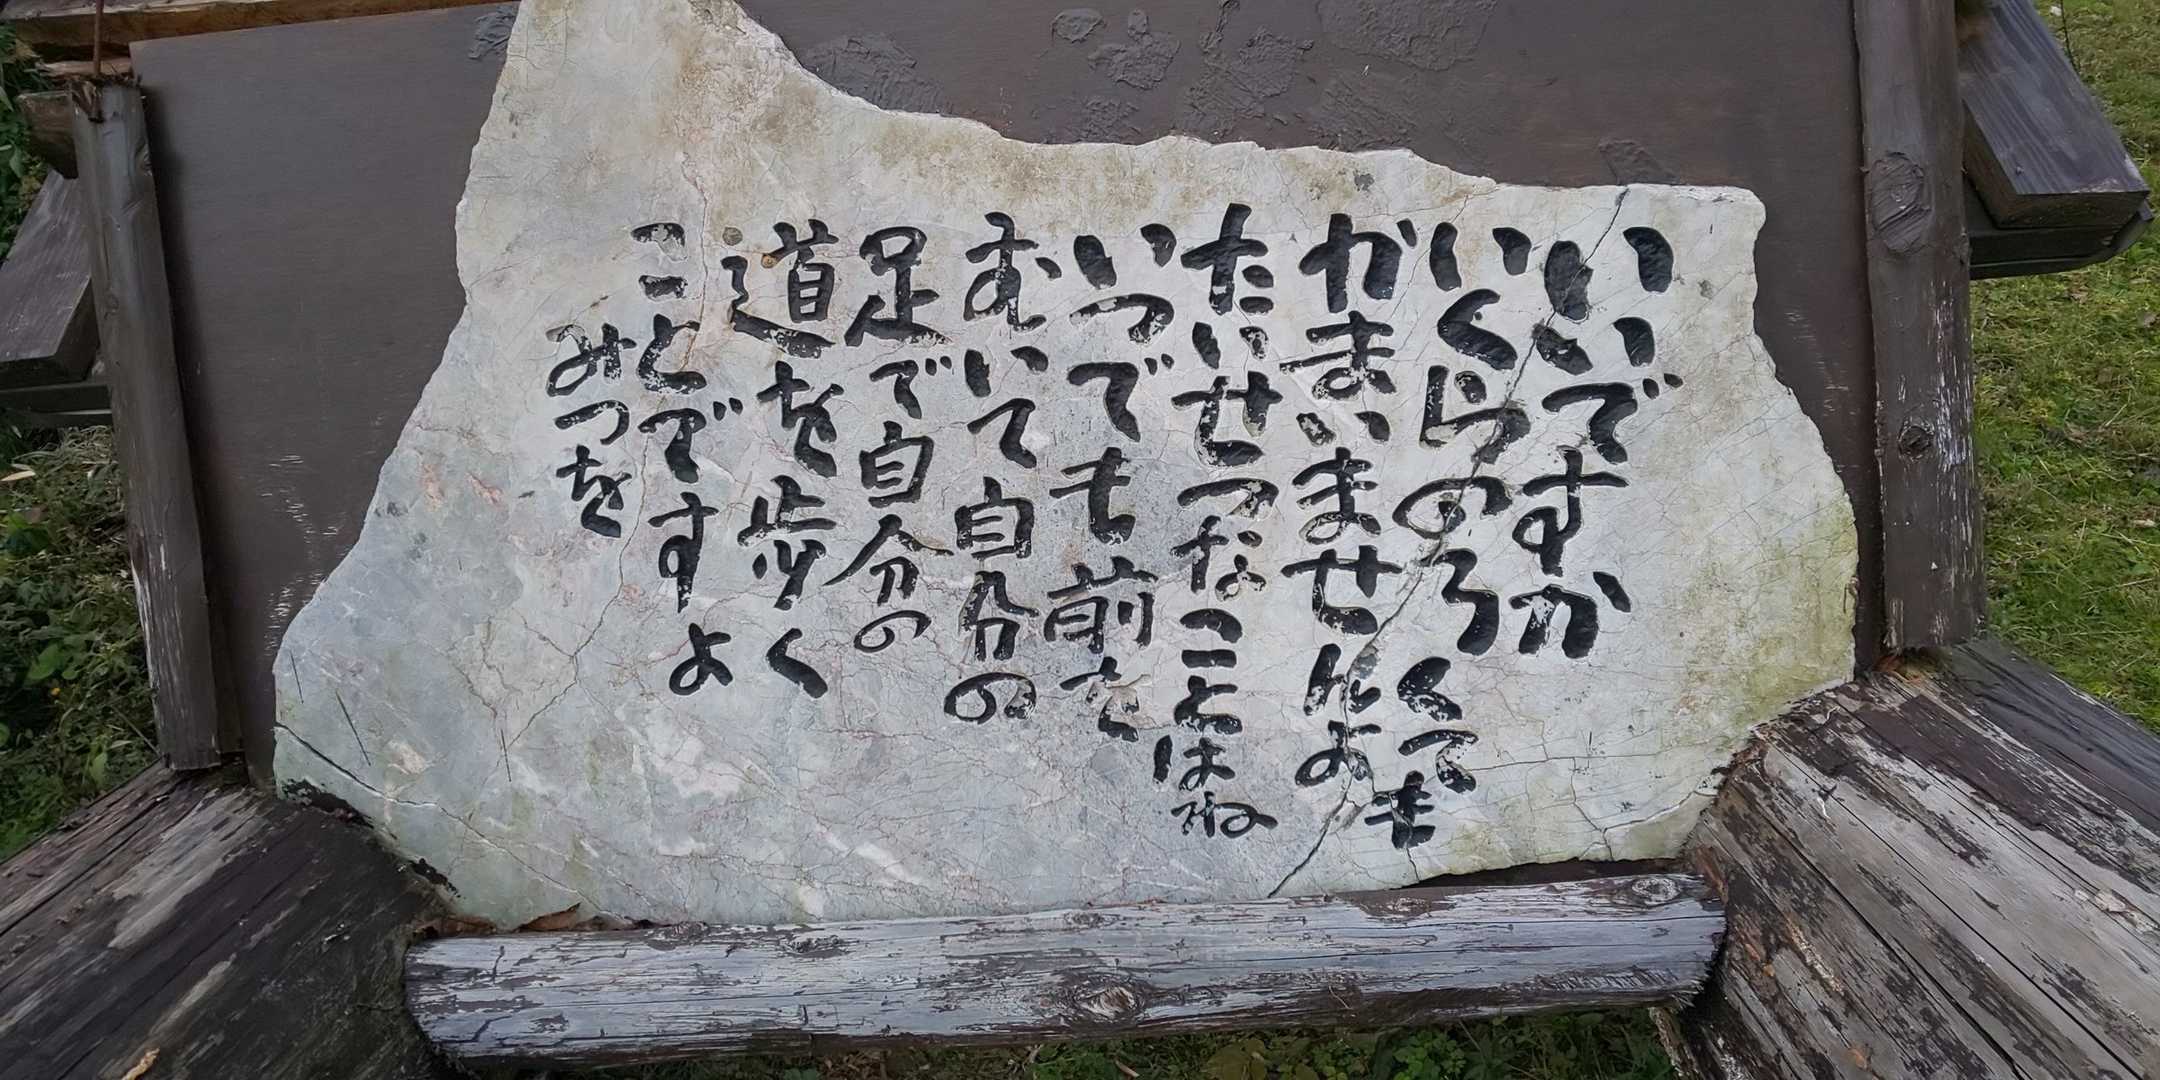 いいですか
いくらのろくても
かまいませんよ
たいせつなことはね
いつでも前を
むいて自分の
足で自分の
道を歩く
ことですよ
みつを